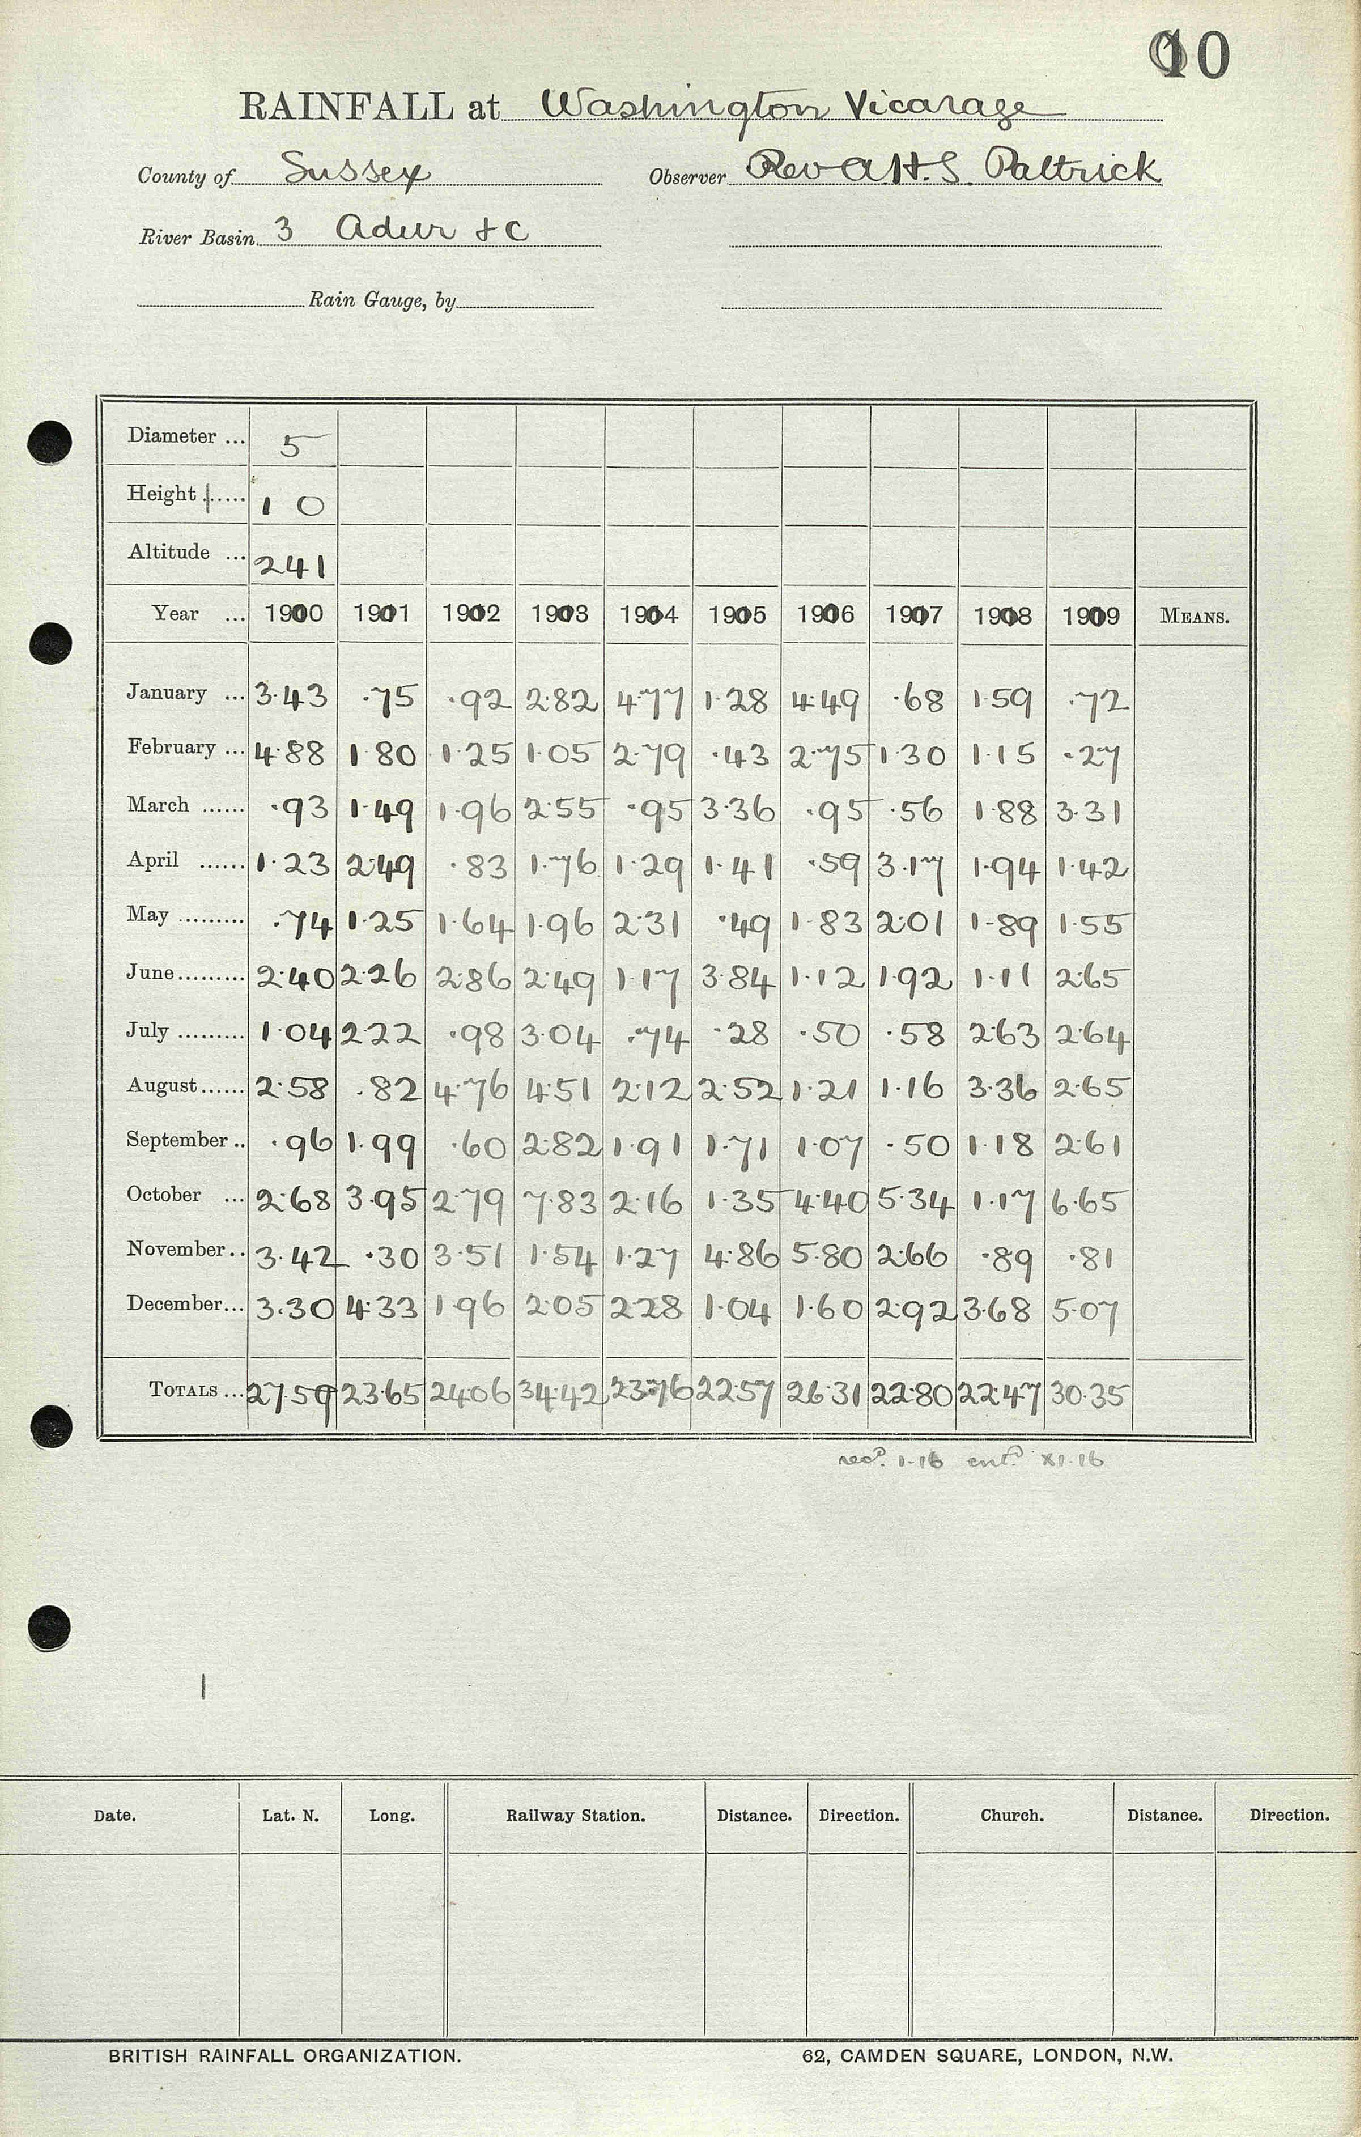 10
RAINFALL at Washington Vicarage
County of Sussex Observer Rev A H. S. Paltrick
River Basin 3 Adur & C
Rain Gauge, by
Diameter ... 5
Height ...... 1 0
Altitude ... 241
Year ... 1900 1901 1902 1903 1904 1905 1906 1907 1908 1909 MEANS.
January ... 3.43 .75 .92 2.82 4.77 1.28 4.49 .68 1.59 .72
February ... 4.88 1.80 1.25 1.05 2.79 .43 2.75 1.30 1.15 .27
March ...... .93 1.49 1.96 2.55 .95 3.36 .95 .56 1.88 3.31
April ...... 1.23 2.49 .83 1.76 1.29 1.41 .59 3.17 1.94 1.42
May ......... .74 1.25 1.64 1.96 2.31 .49 1.83 2.01 1.89 1.55
June ......... 2.40 2.26 2.86 2.49 1.17 3.84 1.12 1.92 1.11 2.65
July ......... 1.04 2.22 .98 3.04 .74 .28 .50 .58 2.63 2.64
August ...... 2.58 .82 4.76 4.51 2.12 2.52 1.21 1.16 3.36 2.65
September .. .96 1.99 .60 2.82 1.91 1.71 1.07 .50 1.18 2.61
October ... 2.68 3.95 2.79 7.83 2.16 1.35 4.40 5.34 1.17 6.65
November .. 3.42 .30 3.51 1.54 1.27 4.86 5.80 2.66 .89 .81
December ... 3.30 4.33 1.96 2.05 2.28 1.04 1.60 2.92 3.68 5.07
TOTALS ... 27.59 23.65 24.06 34.42 23.76 22.57 26.31 22.80 22.47 30.35
recd. 1.16 entd. x1.16
Date. Lat. N. Long. Railway Station. Distance. Direction. Church. Distance. Direction.
BRITISH RAINFALL ORGANIZATION. 62, CAMDEN SQUARE, LONDON, N.W.